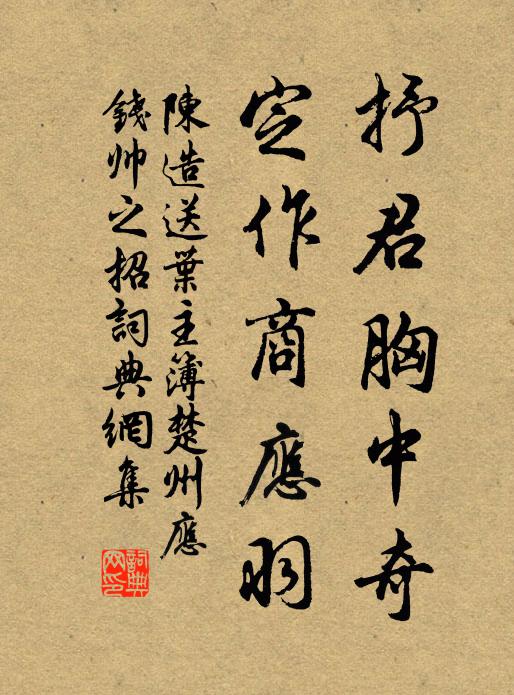 抒君胸中奇
定作商應羽
陳造送葉主簿楚州應
錢帅之招詞典網集
詞典網印